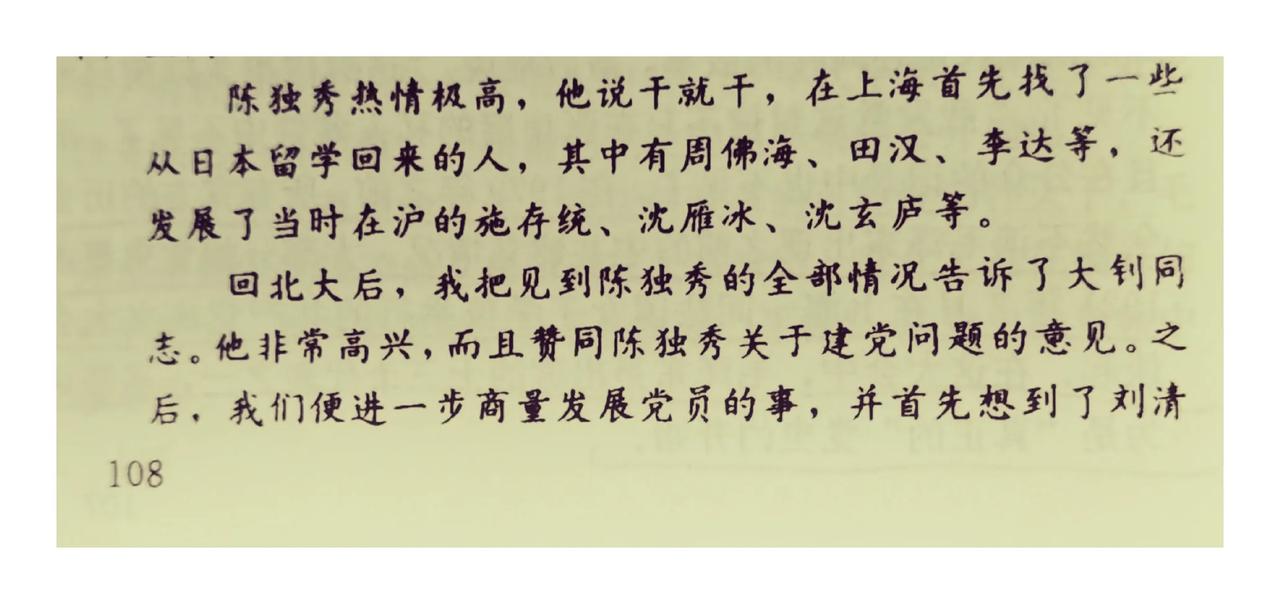 陈独秀热情极高，他说干就干，在上海首先找了一些
从日本留学回来的人，其中有周佛海、田汉、李达等，还
发展了当时在沪的施存统、沈雁冰、沈玄庐等。
回北大后，我把见到陈独秀的全部情况告诉了大钊同
志。他非常高兴，而且赞同陈独秀关于建党问题的意见。之
后，我们便进一步商量发展党员的事，并首先想到了刘清
108